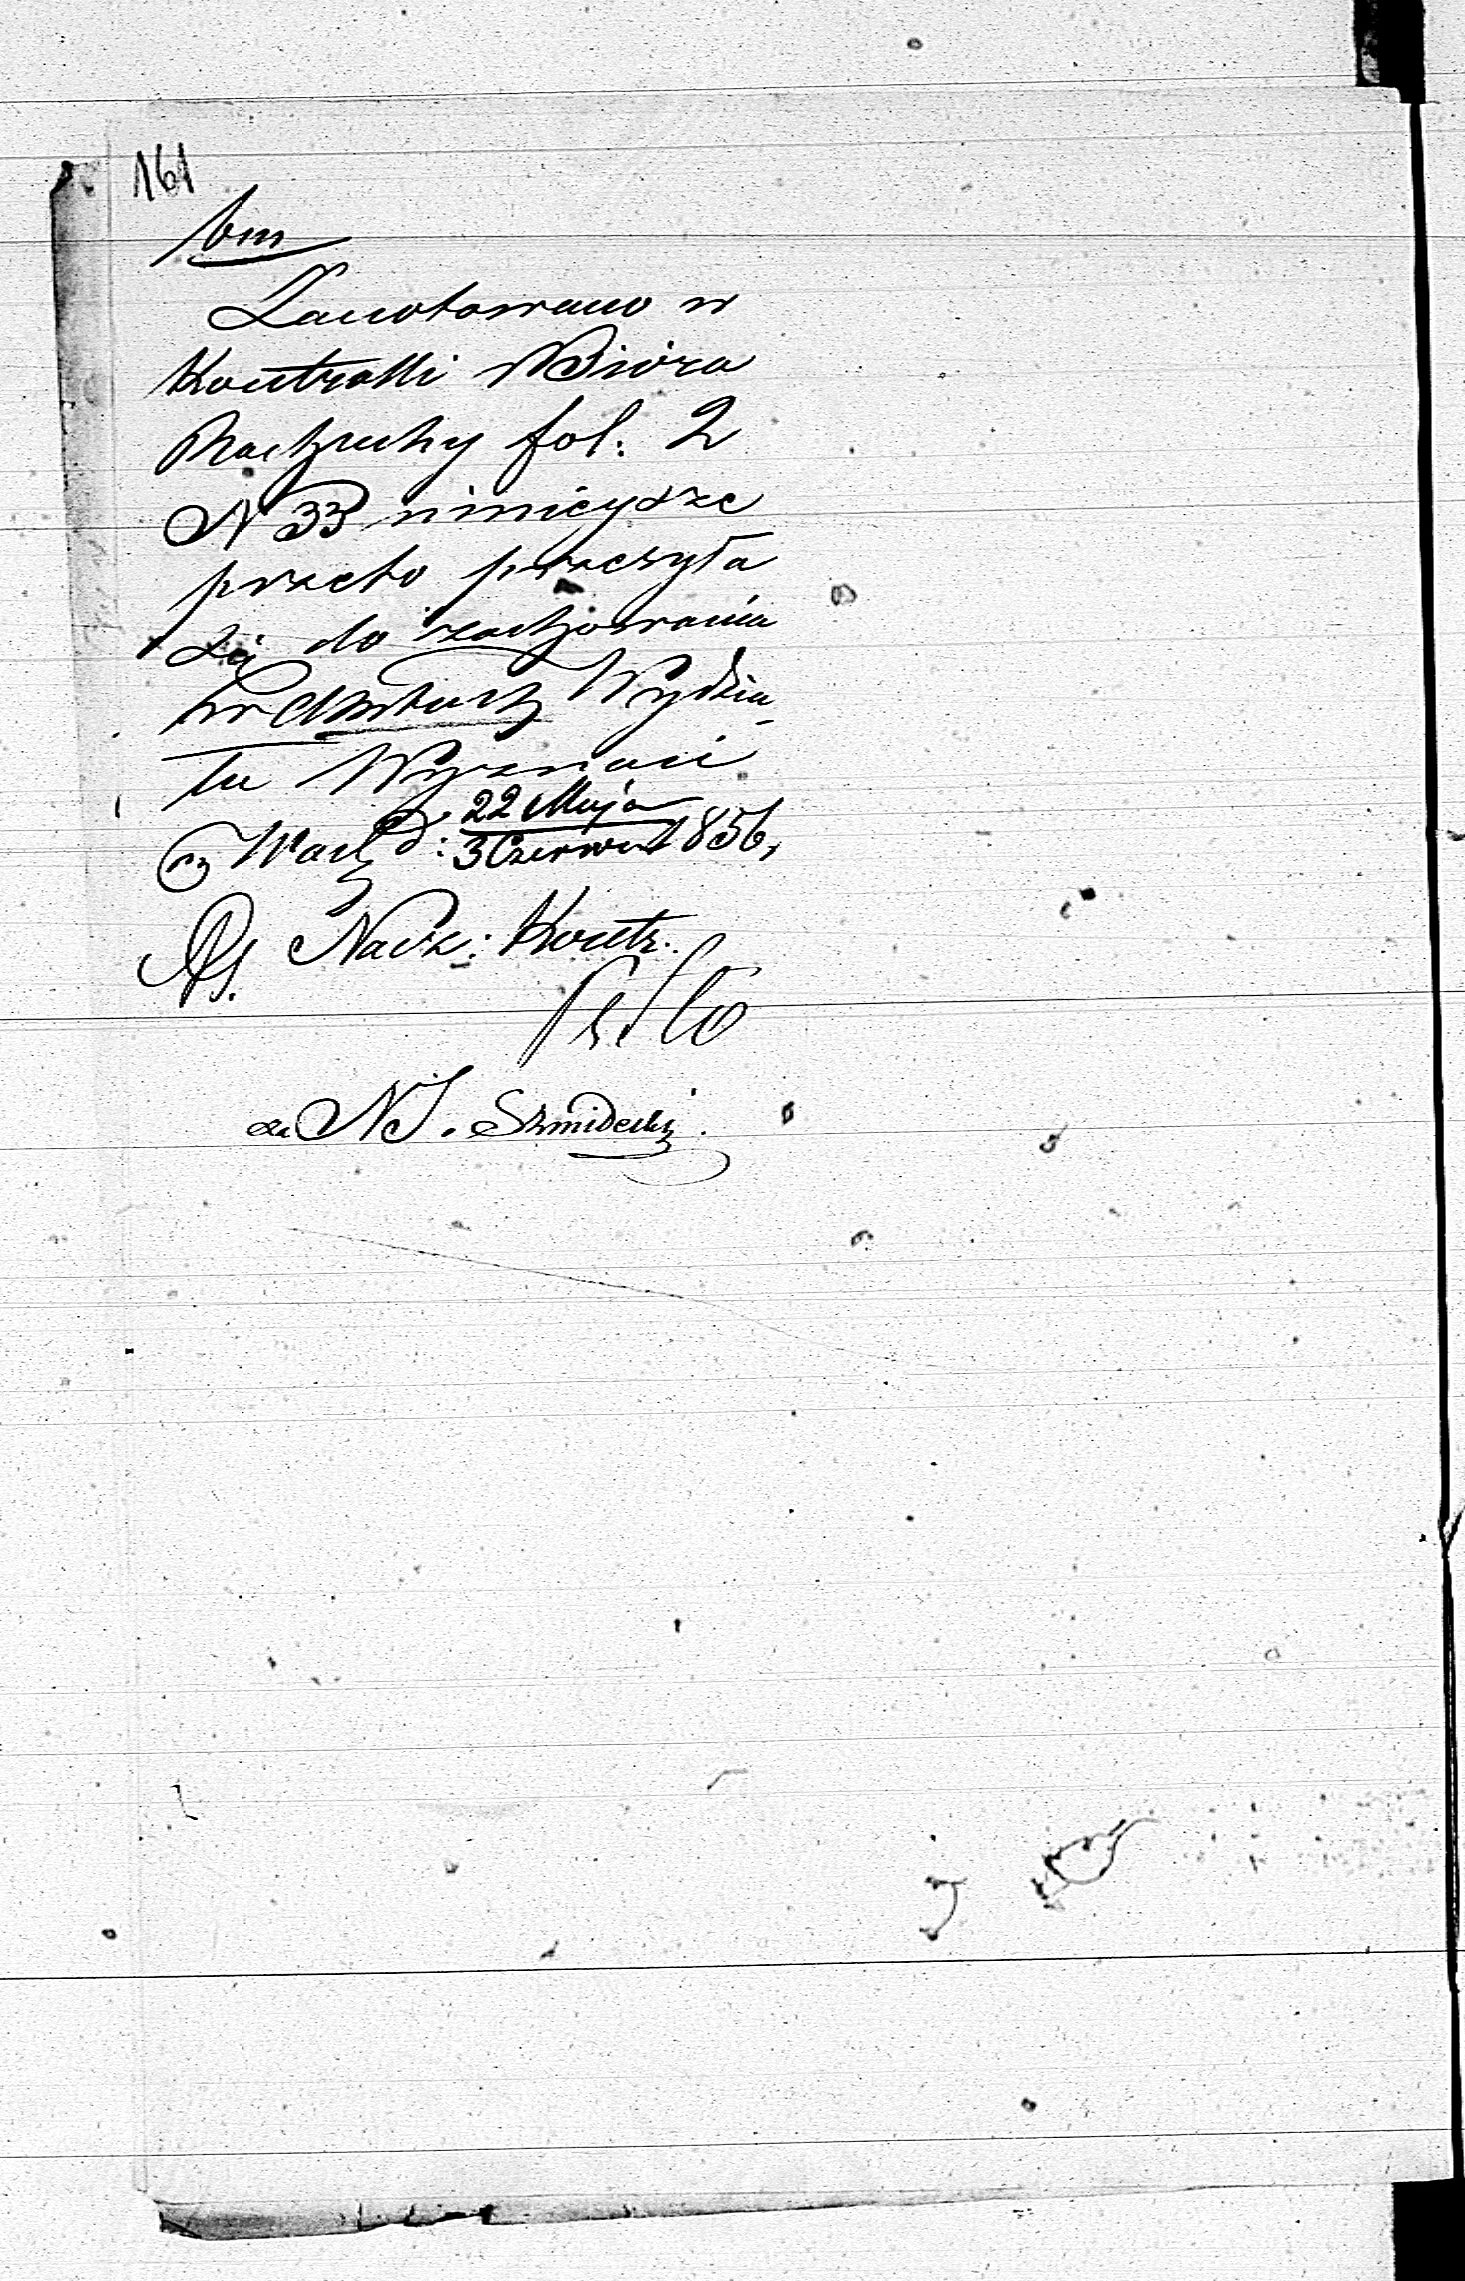 161
bm
Zanotowano w
Kontrolli Bióra
Rachuby fol. 2
N 33 niniejsze
przeto przesyła
się do zachowania
w Aktach Wydzia
łu Wyznań
w Warsz d: 22 Maja
3 Czerwca 1856,
Nacz: Kontr.
za NS. Szmidecki